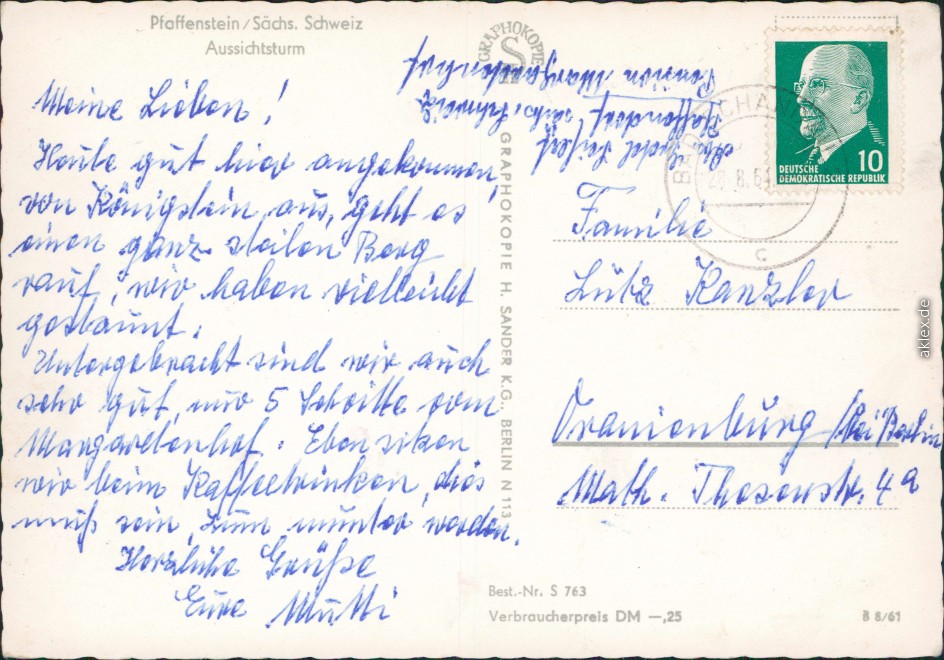 Pfaffenstein/Sächs. Schweiz
Aussichtsturm
Meine Lieben!
Heute gut hier angekommen,
von Königstein aus, geht es
einen ganz steilen Berg
rauf, wir haben vielleicht
gestaunt.
Untergebracht sind wir auch
sehr gut, nur 5 Schritte vom
Margaretenhof. Eben sitzen
wir beim Kaffeetrinken, dies
muß sein, zum munter werden.
Herzliche Grüße
Eure Mutti
GRAPHOKOPIE
S
GRAPHOKOPIE H. SANDER K.G., BERLIN N 113
Pfaffendorf, Sächs. Schweiz
Pension Margaretenhof
DEUTSCHE
DEMOKRATISCHE REPUBLIK
10
BAD SCHANDAU
c
Familie
Lutz Kanzler
Oranienburg /bei Berlin
Math. Thesenstr. 4a
Best.-Nr. S 763
Verbraucherpreis DM —,25
B 8/61
aklex.de